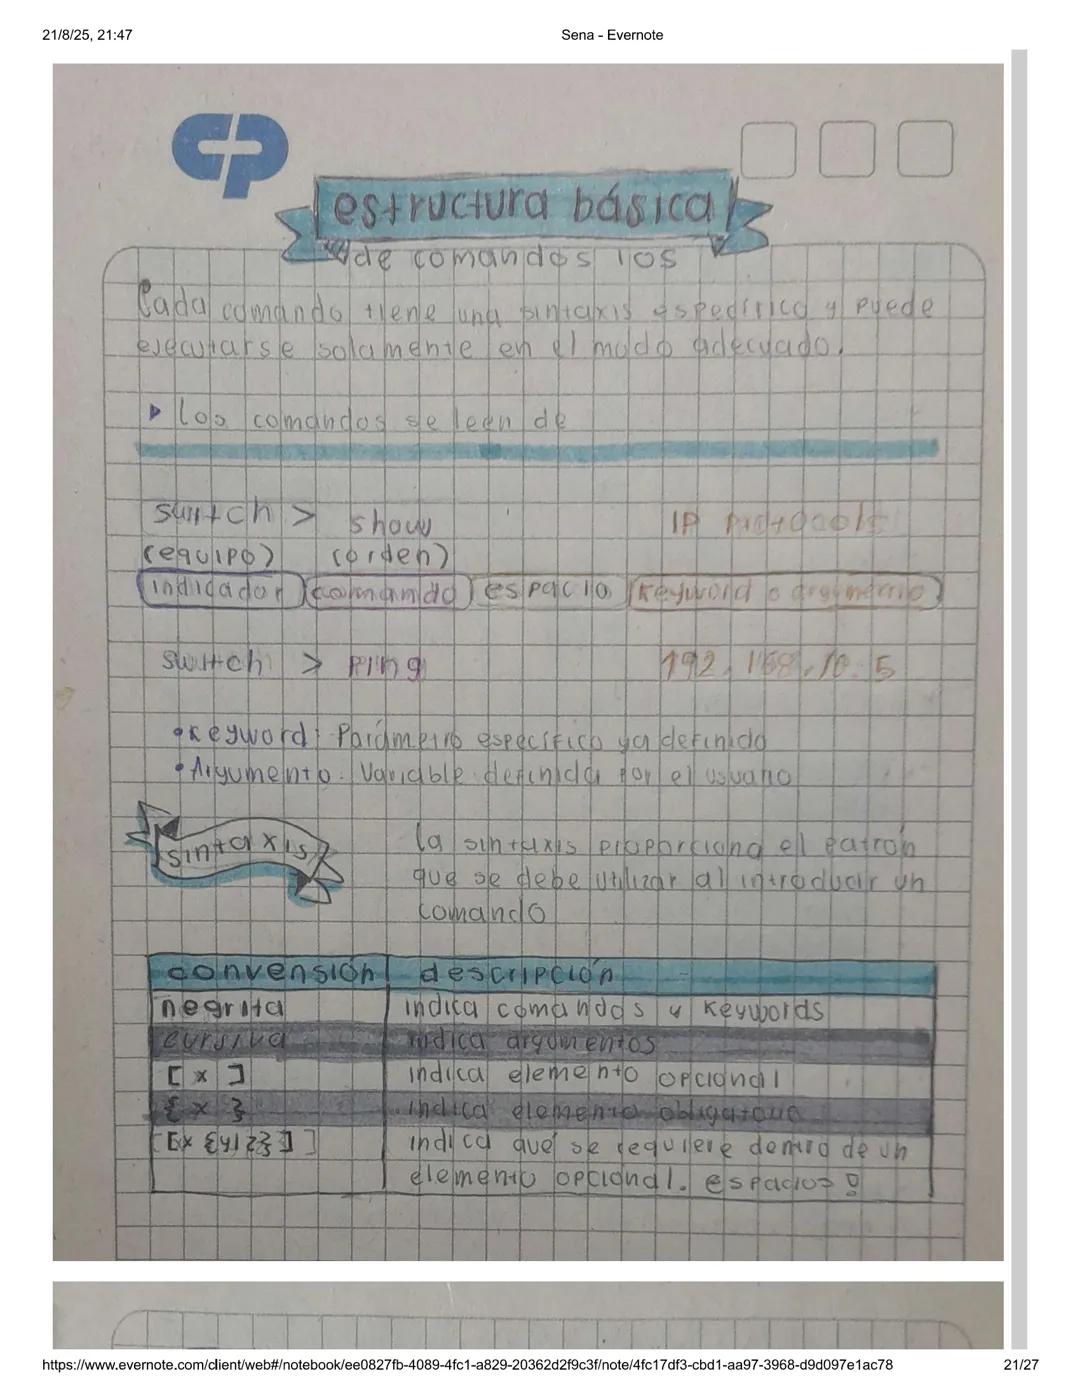 21/8/25, 21:47 Sena - Evernote
estructura básica
de comandos ios
Cada comando tiene una sintaxis específica y puede
ejecutarse solamente en el modo adecuado.
Los comandos se leen de
switch > show IP
(equipo) (orden)
indicador comando espacio keyword o argumento
switch > Ping 192.168.10.5
• Keyword: Parámetro específico ya definido
• Argumento: Variable definida por el usuario
sintaxis
la sintaxis proporciona el patrón
que se debe utilizar al introducir un
comando
convensión descripción
negrita indica comandos y keywords
cursiva indica argumentos
[ x ] indica elemento opcional
{ x } indica elemento obligatorio
[x {y|z}] indica que se requiere dentro de un
elemento opcional. espacios !
https://www.evernote.com/client/web#/notebook/ee0827fb-4089-4fc1-a829-20362d2f9c3f/note/4fc17df3-cbd1-aa97-3968-d9d097e1ac78 21/27